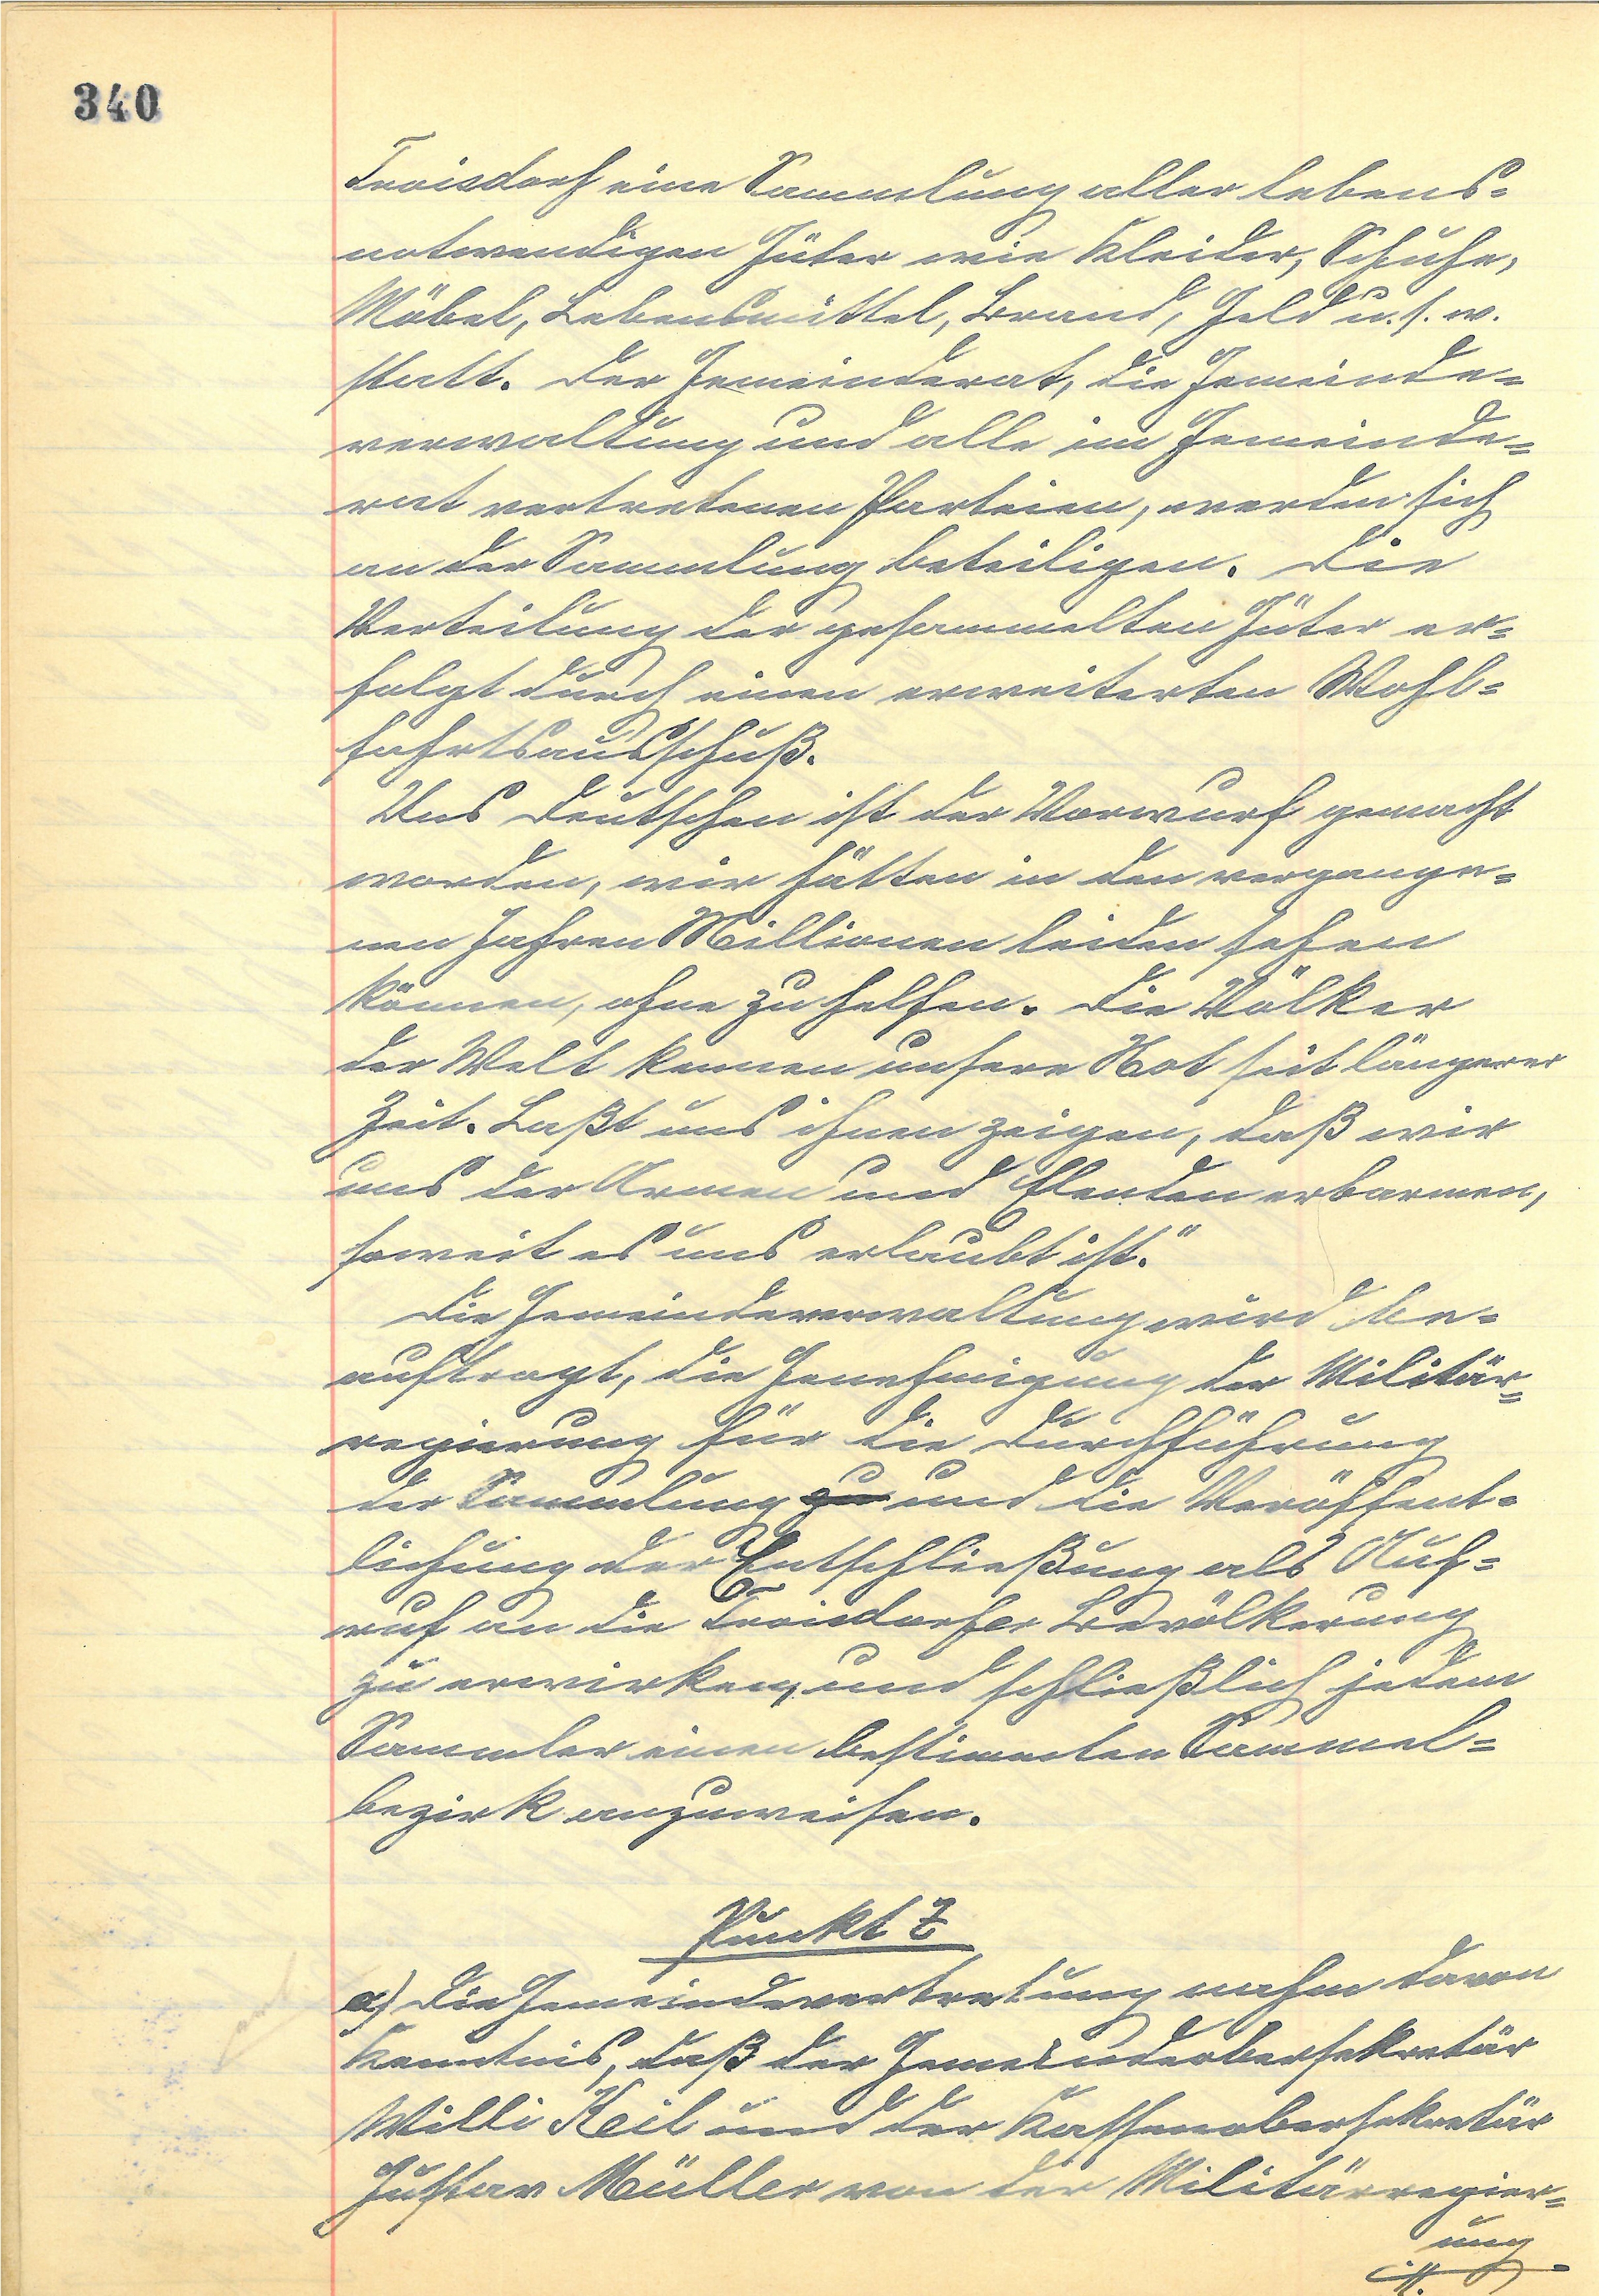 340
Troisdorf eine Sammlung aller lebens-
notwendigen Güter wie Kleider, Schuhe,
Möbel, Lebensmittel, Brand, Geld u.s.w.
statt. Der Gemeinderat, die Gemeinde-
verwaltung und alle im Gemeinde-
rat vertretenen Parteien, werden sich
an der Sammlung beteiligen. Die
Verteilung der gesammelten Güter er-
folgt durch einen erweiterten Wohl-
fahrtsausschuß.
Uns Deutschen ist der Vorwurf gemacht
worden, wir hätten in den vergange-
nen Jahren Millionen leiden sehen
können, ohne zu helfen. Die Völker
der Welt kennen unsere Not seit längerer
Zeit. Laßt uns ihnen zeigen, daß wir
uns der Armen und Elenden erbarmen,
soweit es uns erlaubt ist."
Die Gemeindeverwaltung wird be-
auftragt, die Genehmigung der Militär-
regierung für die Durchführung
der Sammlung zu und die Veröffent-
lichung der Entschließung als Auf-
ruf an die Troisdorfer Bevölkerung
zu erwirken, und schließlich jedem
Sammler einen bestimmten Sammel-
bezirk anzuweisen.
Punkt 7
a) Die Gemeindevertretung nahm davon
Kenntnis, daß der Gemeindeobersekretär
Willi Keil und der Kassenobersekretär
Gustav Müller von der Militärregier-
ung